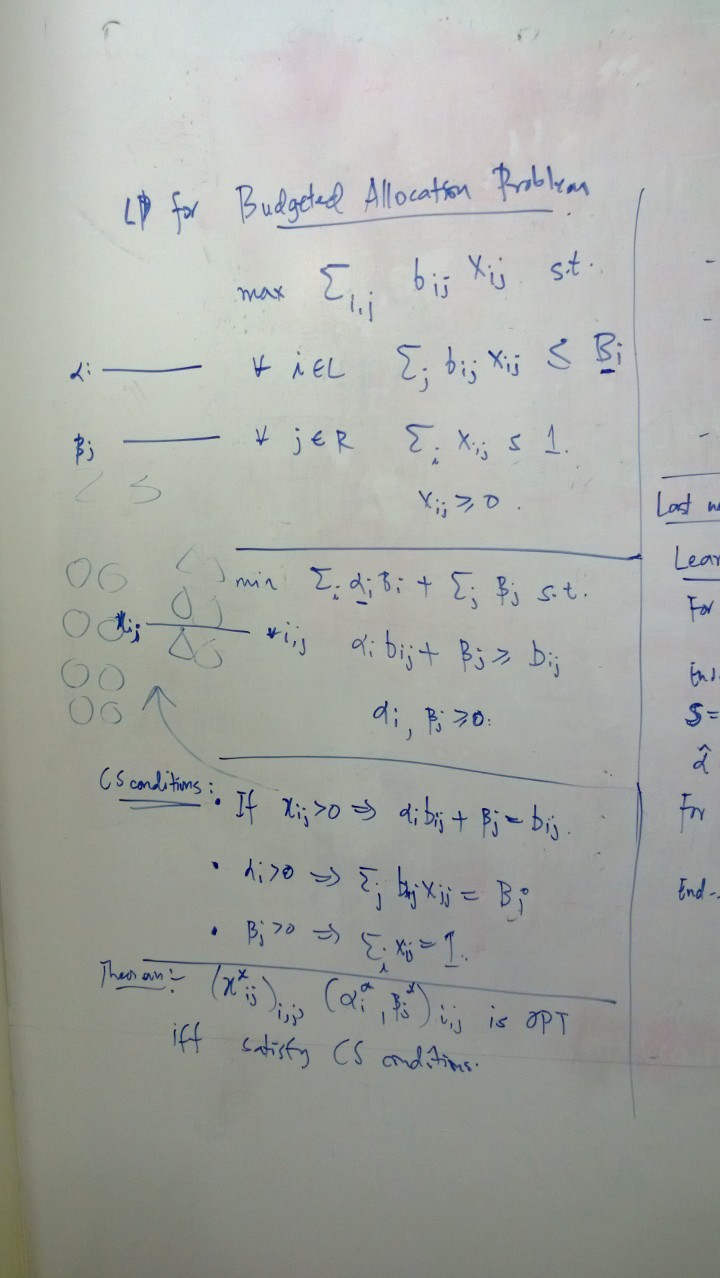 LP for Budgeted Allocation Problem
max Σi,j bij xij s.t.
αi ∀ i∈L Σj bij xij ≤ Bi
βj ∀ j∈R Σi xij ≤ 1.
xij ≥ 0.
min Σi αi Bi + Σj βj s.t.
xij ∀i,j αi bij + βj ≥ bij
αi, βj ≥ 0.
CS conditions:
• If xij>0 ⇒ αi bij + βj = bij.
• αi>0 ⇒ Σj bij xij = Bi
• βj>0 ⇒ Σi xij = 1.
Theorem:- (x*ij)i,j, (αi*, βj*)i,j is OPT
iff satisfy CS conditions.
-
-
-
Last
Lear
For
End.
S=
α̂
For
End-